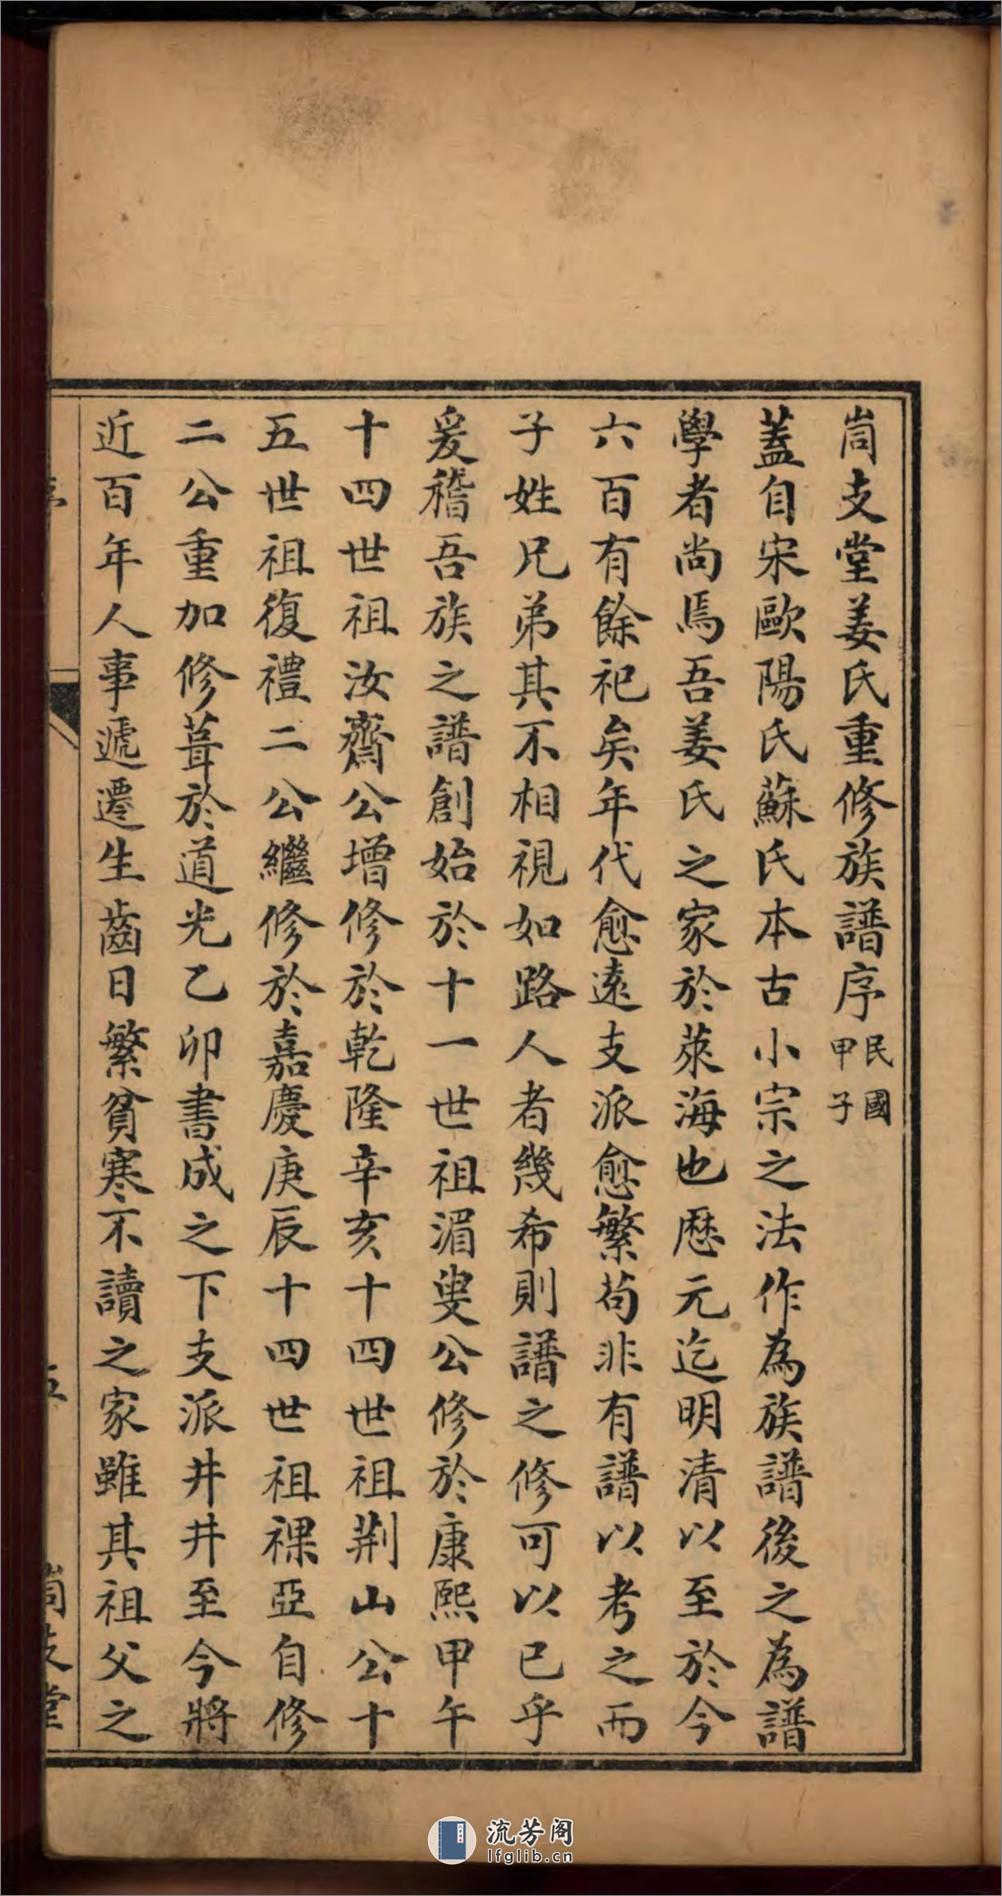 耑支堂姜氏重修族譜序民國甲子
蓋自宋歐陽氏蘇氏本古小宗之法作為族譜後之為譜
學者尚焉吾姜氏之家於萊海也歷元迄明清以至於今
六百有餘祀矣年代愈遠支派愈繁苟非有譜以考之而
子姓兄弟其不相視如路人者幾希則譜之修可以已乎
爰稽吾族之譜創始於十一世祖湄叟公修於康熙甲午
十四世祖汝齋公增修於乾隆辛亥十四世祖荆山公十
五世祖復禮二公繼修於嘉慶庚辰十四世祖裸亞自修
二公重加修葺於道光乙卯書成之下支派井井至今將
近百年人事遞遷生齒日繁貧寒不讀之家雖其祖父之
流芳阁
lfglib.cn